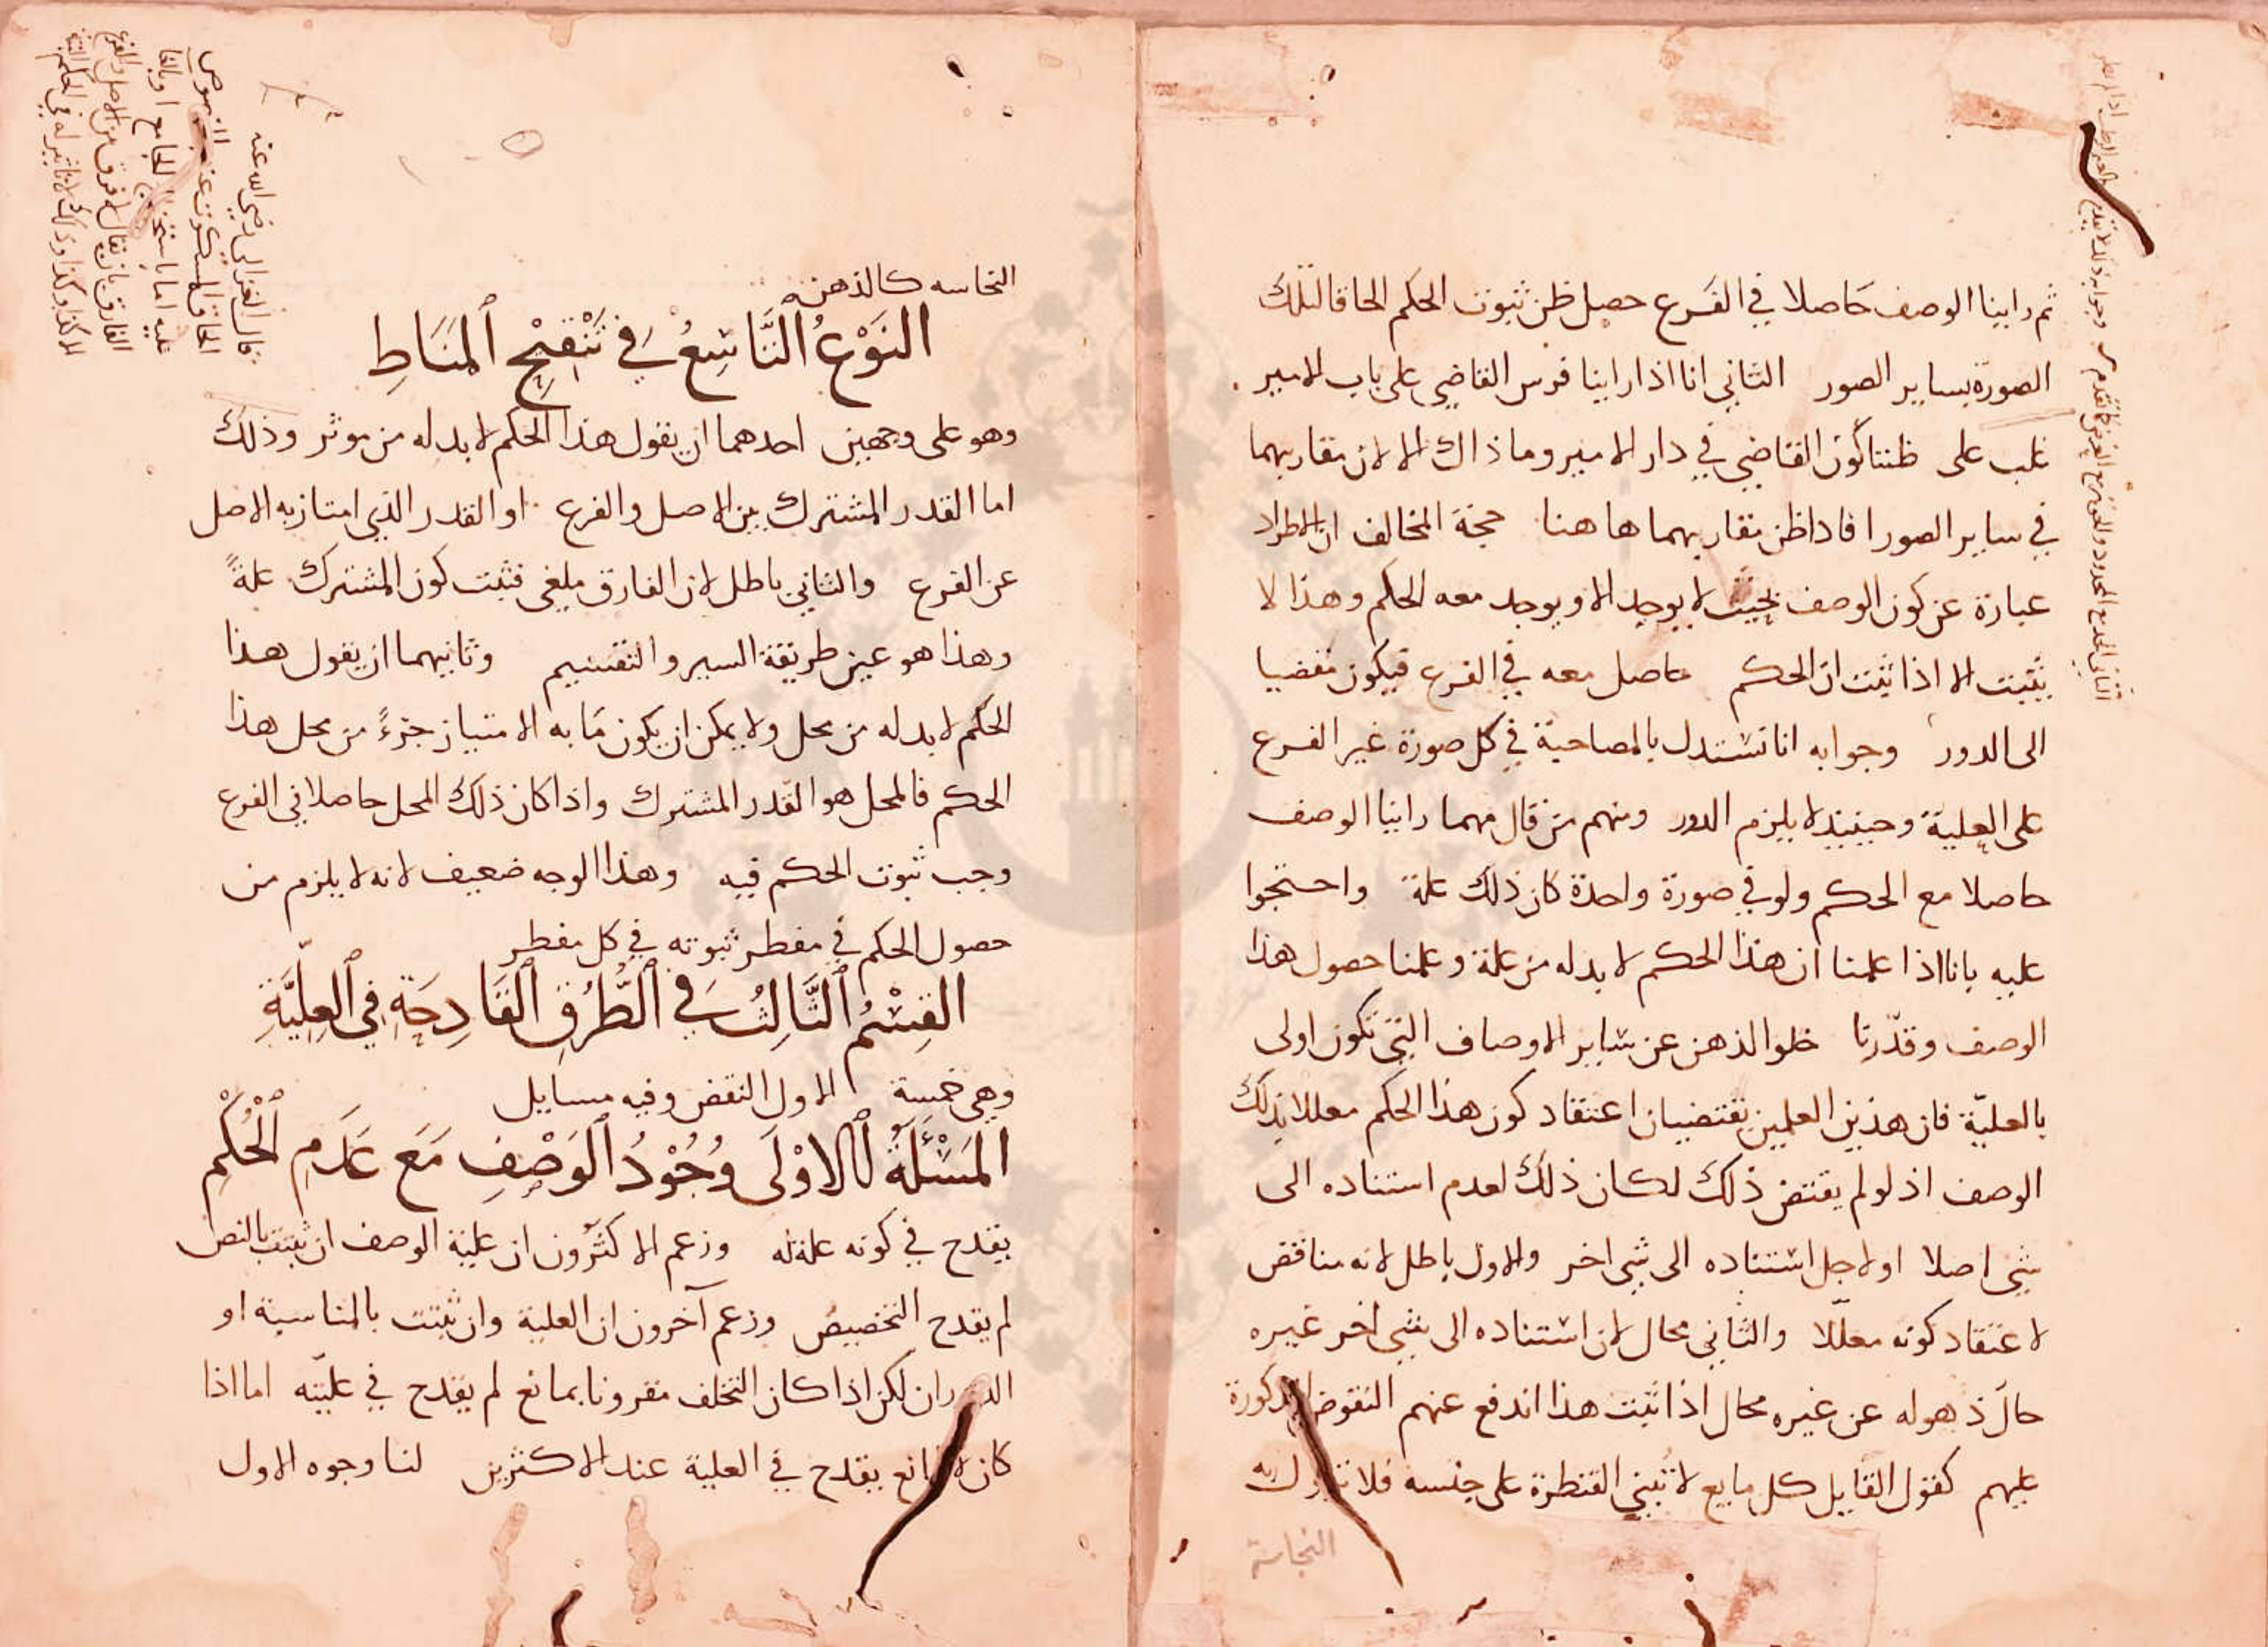 ثم راينا الوصف حاصلا في الفرع حصل ظن ثبوت الحكم الحاقا لتلك
الصورة بساير الصور الثاني انا اذا راينا فرس القاضي على باب الامير
غلب على ظننا كون القاضي في دار الامير وما ذاك الا لان تقاربهما
في ساير الصور افادا ظن تقاربهما هاهنا حجة المخالف ان الاطراد
عبارة عن كون الوصف بحيث لا يوجد الا ويوجد معه الحكم وهذا لا
يثبت الا اذا ثبت ان الحكم حاصل معه في الفرع فيكون مفضيا
الى الدور وجوابه انا نستدل بالمصاحبة في كل صورة غير الفرع
على العلية وحينيذ لا يلزم الدور ومنهم من قال مهما راينا الوصف
حاصلا مع الحكم ولو في صورة واحدة كان ذلك علة واحتجوا
عليه بانا اذا علمنا ان هذا الحكم لا بد له من علة وعلمنا حصول هذا
الوصف وقدّرنا خلو الذهن عن ساير الاوصاف التي تكون اولى
بالعليّة فان هذين العلمين يقتضيان اعتقاد كون هذا الحكم معللا بذلك
الوصف اذ لو لم يقتض ذلك لكان ذلك لعدم استناده الى
شي اصلا او لاجل استناده الى شي اخر والاول باطل لانه مناقض
لاعتقاد كونه معلّلا والثاني محال لان استناده الى شي اخر غيره
حالَ ذهوله عن غيره محال اذا ثبت هذا اندفع عنهم النقوض المذكورة
عليهم كقول القايل كل مايع لا تبنى القنطرة على جنسه فلا تزول به
النجاسة
النجاسه كالدهن
النَوْعُ التَّاسِعُ في تَنْقِيْحِ المَنَاطِ
وهو على وجهين احدهما ان يقول هذا الحكم لا بد له من موثر وذلك
اما القدر المشترك بين الاصل والفرع او القدر الذي امتاز به الاصل
عن الفرع والثاني باطل لان الفارق ملغى فثبت كون المشترك علةً
وهذا هو عين طريقة السبر والتقسيم وثانيهما ان يقول هذا
الحكم لا بد له من محل ولا يمكن ان يكون مَا به الامتياز جزءً من محل هذا
الحكم فالمحل هو القدر المشترك واذا كان ذلك المحل حاصلا في الفرع
وجب ثبوت الحكم فيه وهذا الوجه ضعيف لانه لا يلزم من
حصول الحكم في مفطر ثبوته في كل مفطر
القِسْمُ الثَّالِثُ في الطُّرُقِ القَادِحَةِ فِي العِلِّيَّةِ
وهي خمسة الاول النقض وفيه مسايل
المَسْئَلَةُ الاوْلَى وُجُوْدُ الوَصْفِ مَعَ عَدَمِ الحُكْمِ
يقدح في كونه علة له وزعم الاكثرون ان علية الوصف ان ثبتت بالنص
لم يقدح التخصيص وزعم آخرون ان العلية وان ثبتت بالمناسبة او
الدوران لكن اذا كان التخلف مقرونا بمانع لم يقدح في عليّته اما اذا
كان لا لمانع يقدح في العلية عند الاكثرين لنا وجوه الاول
قال الغزالي رضي الله عنه
الحاق المسكوت عنه بالمنصوص
عليه اما باستخراج الجامع او بالغا
الفارق بان يقال لا فرق بين الاصل والفرع
الا كذا وكذا وذلك لا تاثير له في الحكم البتة